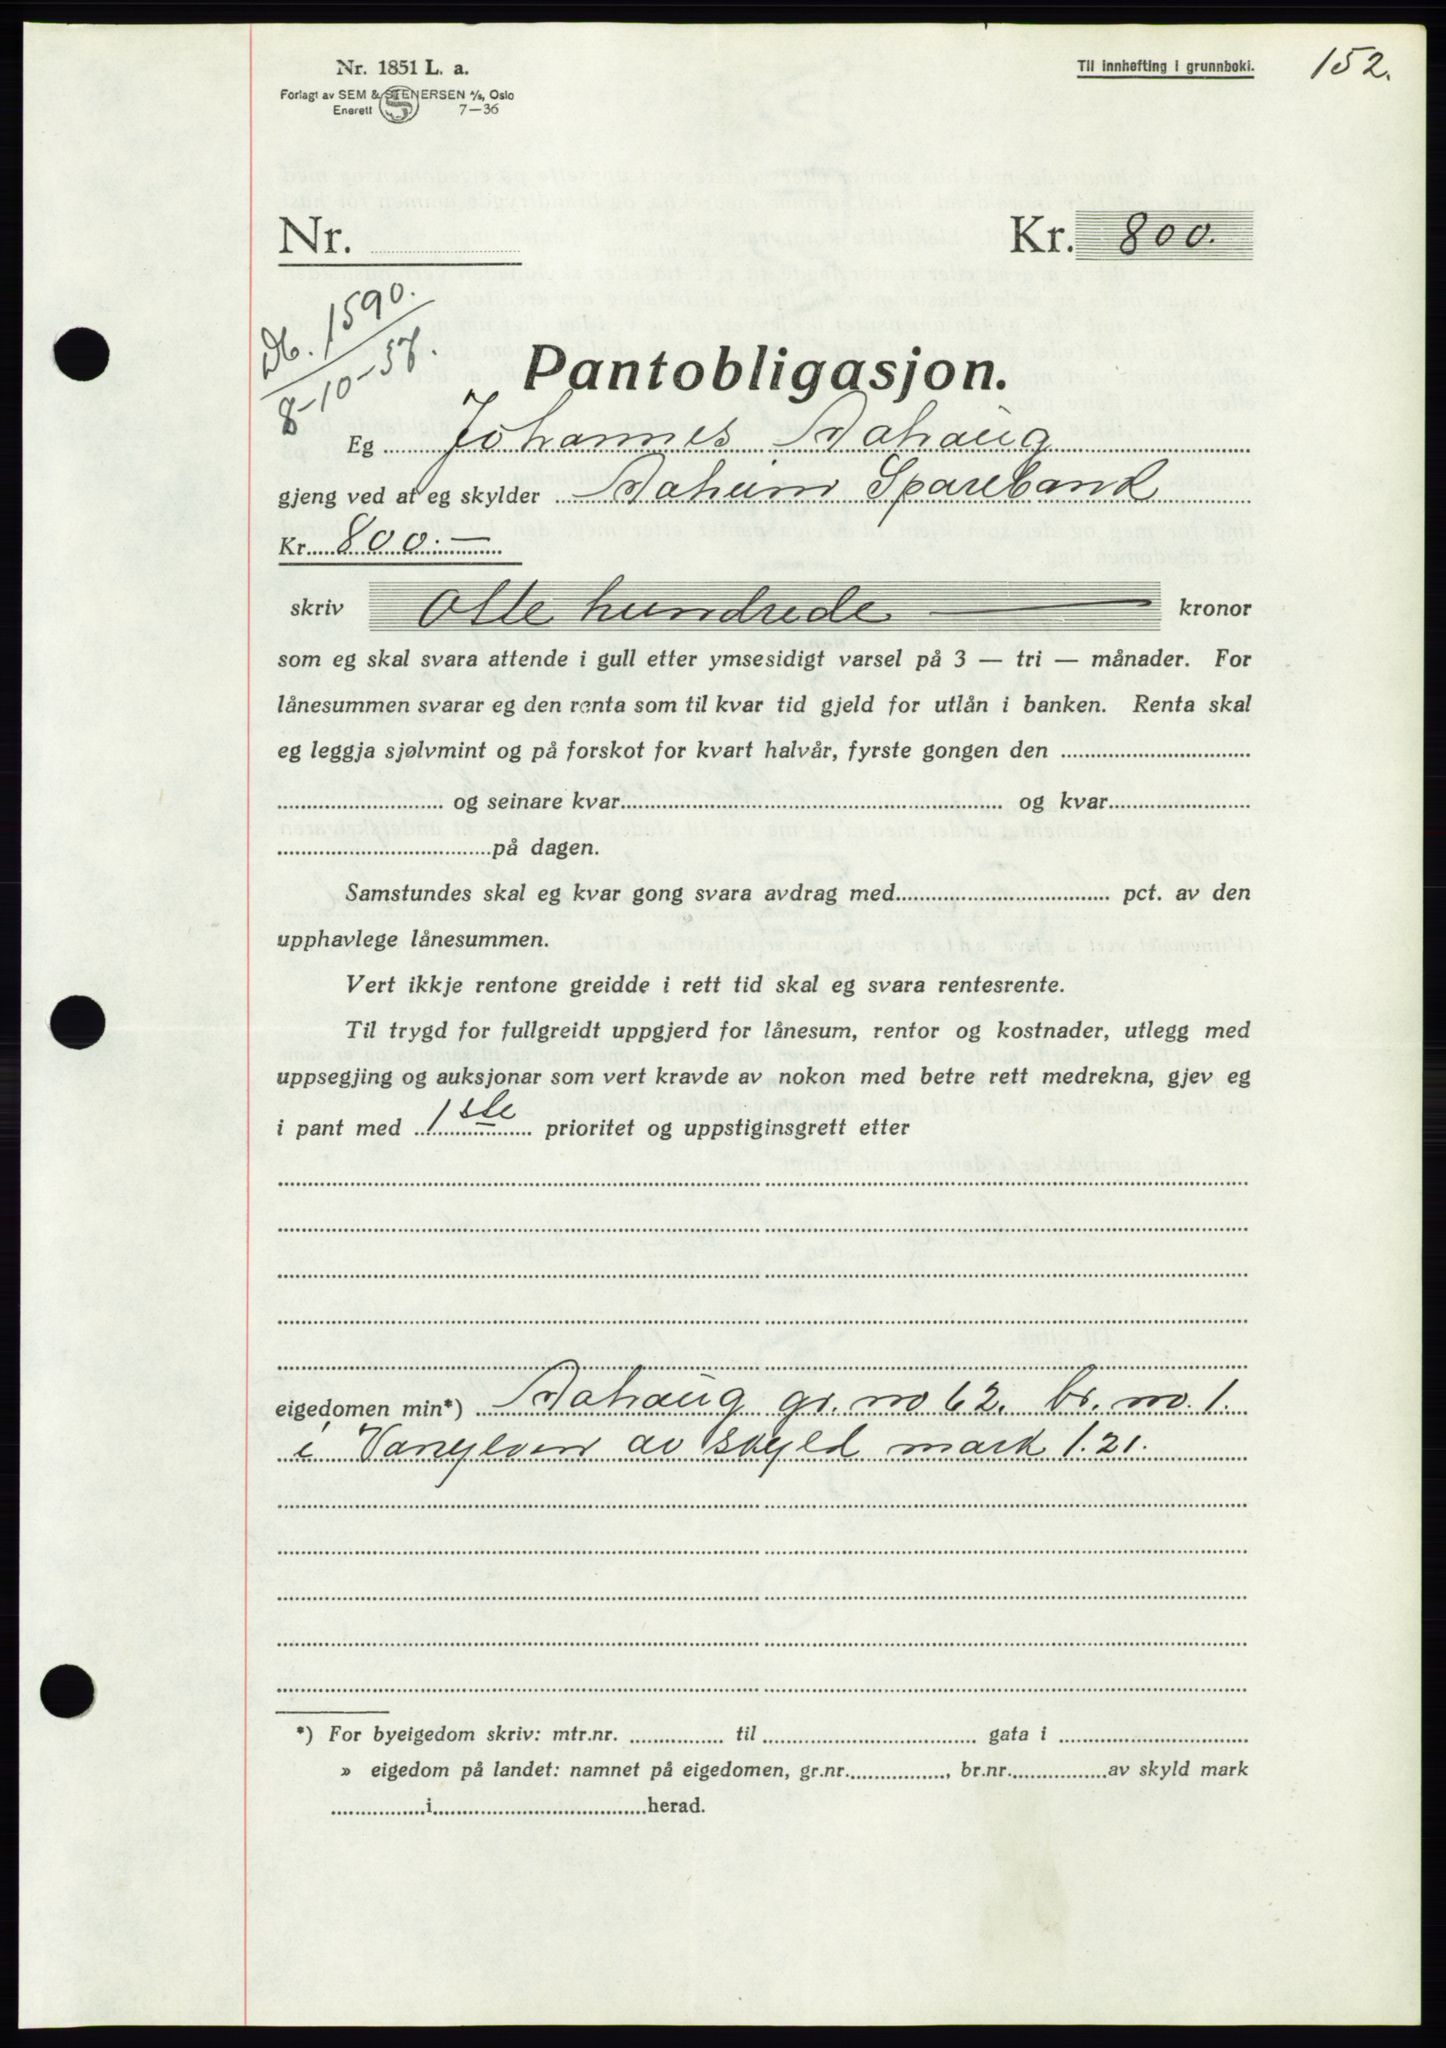 152.
Nr. 1851 L. a.
Til innhefting i grunnboki.
Forlagt av SEM & STENERSEN A/S, Oslo
Enerett 7—36
Nr.
Kr. 800.
Db. 1590.
8-10-37.
Pantobligasjon.
Eg Johannes Aahaug
gjeng ved at eg skylder Aaheim Sparebank
Kr. 800.—
skriv Otte hundrede — kronor
som eg skal svara attende i gull etter ymsesidigt varsel på 3 — tri — månader. For
lånesummen svarar eg den renta som til kvar tid gjeld for utlån i banken. Renta skal
eg leggja sjølvmint og på forskot for kvart halvår, fyrste gongen den
og seinare kvar og kvar
på dagen.
Samstundes skal eg kvar gong svara avdrag med pct. av den
upphavlege lånesummen.
Vert ikkje rentone greidde i rett tid skal eg svara rentesrente.
Til trygd for fullgreidt uppgjerd for lånesum, rentor og kostnader, utlegg med
uppsegjing og auksjonar som vert kravde av nokon med betre rett medrekna, gjev eg
i pant med 1ste prioritet og uppstiginsgrett etter
eigedomen min*) Aahaug gr. no 62. br. no. 1.
i Vanylven av skyld mark 1.21.
*) For byeigedom skriv: mtr.nr. til gata i
» eigedom på landet: namnet på eigedomen, gr.nr. , br.nr. av skyld mark
i herad.